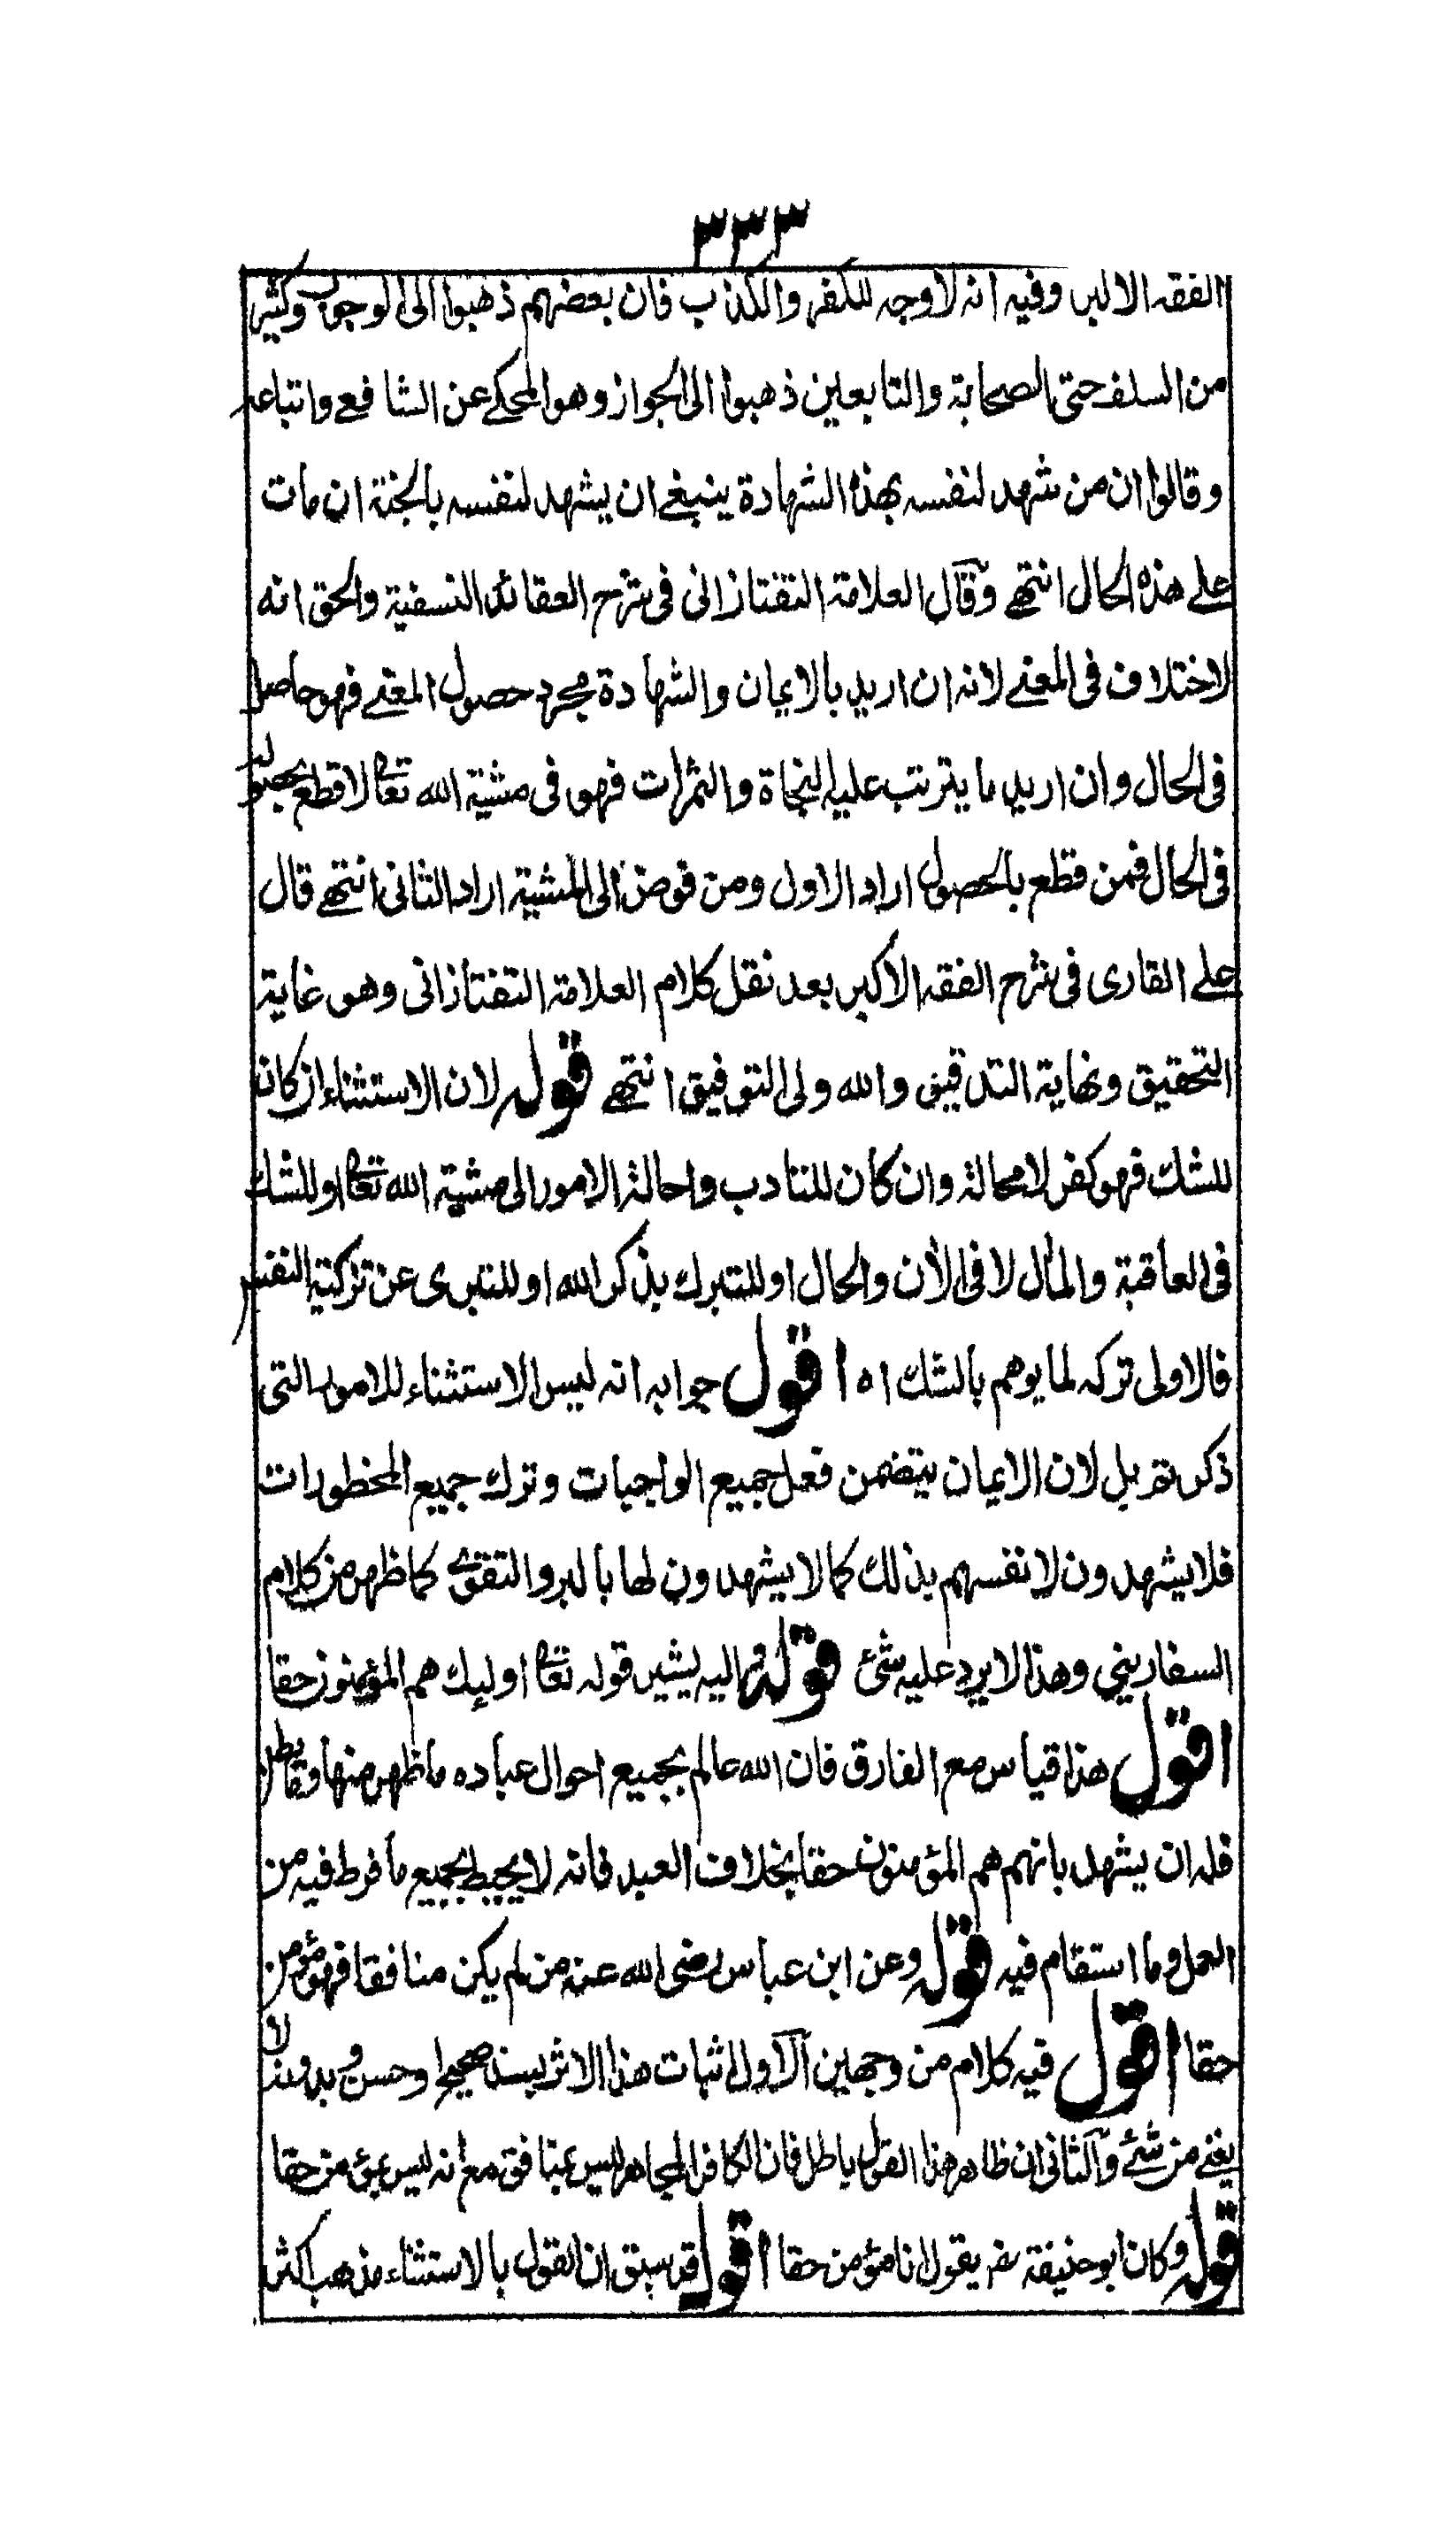 ٣٣٣
الفقه الاكبر وفيه انه لا وجه للكفر والكذب فان بعضهم ذهبوا الى الوجوب وكثير
من السلف حتى الصحابة والتابعين ذهبوا الى الجواز وهو المحكے عن الشافعے واتباعه
وقالوا ان من شهد لنفسه بهذه الشهادة ينبغے ان يشهد لنفسه بالجنة ان مات
علے هذه الحال انتهے وقال العلامة التفتازانى فى شرح العقائد النسفية والحق انه
لا ختلاف فى المعنے لانه ان اريد بالايمان والشهادة مجرد حصول المعنے فهو حاصل
فى الحال وان اريد ما يترتب عليه النجاة والثمرات فهو فى مشية الله تعالى لا قطع بحصوله
فى الحال فمن قطع بالحصول اراد الاول ومن فوض الى المشية اراد الثانى انتهے قال
علے القارى فى شرح الفقه الاكبر بعد نقل كلام العلامة التفتازانى وهو غاية
التحقيق ونهاية التدقيق والله ولى التوفيق انتهے قوله لان الاستثناء ان كان
للشك فهو كفر لا محالة وان كان للتادب واحالة الامور الى مشية الله تعالى او للشك
فى العاقبة والمآل لا فى الآن والحال او للتبرك بذكر الله او للتبرى عن تزكية النفس
فالاولى تركه لما يوهم بالشك اه اقول جوابه انه ليس الاستثناء للامور التى
ذكرتم بل لان الايمان يتضمن فعل جميع الواجبات وترك جميع المحظورات
فلا يشهدون لانفسهم بذلك كما لا يشهدون لها بالبر والتقوى كما ظهر من كلام
السفارينى وهذا لا يرد عليه شئ قوله واليه يشير قوله تعالى اوليك هم المؤمنون حقا
اقول هذا قياس مع الفارق فان الله عالم بجميع احوال عباده ما ظهر منها وما بطن
فله ان يشهد بانهم هم المؤمنون حقا بخلاف العبد فانه لا يحيط بجميع ما فرط فيه من
العمل وما استقام فيه قوله وعن ابن عباس رضى الله عنه من لم يكن منافقا فهو مؤمن
حقا اقول فيه كلام من وجهين الاول اثبات هذا الاثر بسند صحيح او حسن و بدونه لا
يغنے من شئے والثانى ان ظاهر هذا القول باطل فان الكافر المجاهر ليس بمنافق مع انه ليس بمؤمن حقا
قوله وكان ابو حنيفة يقول انا مؤمن حقا اقول قد سبق ان القول بالاستثناء مذهب اكثر